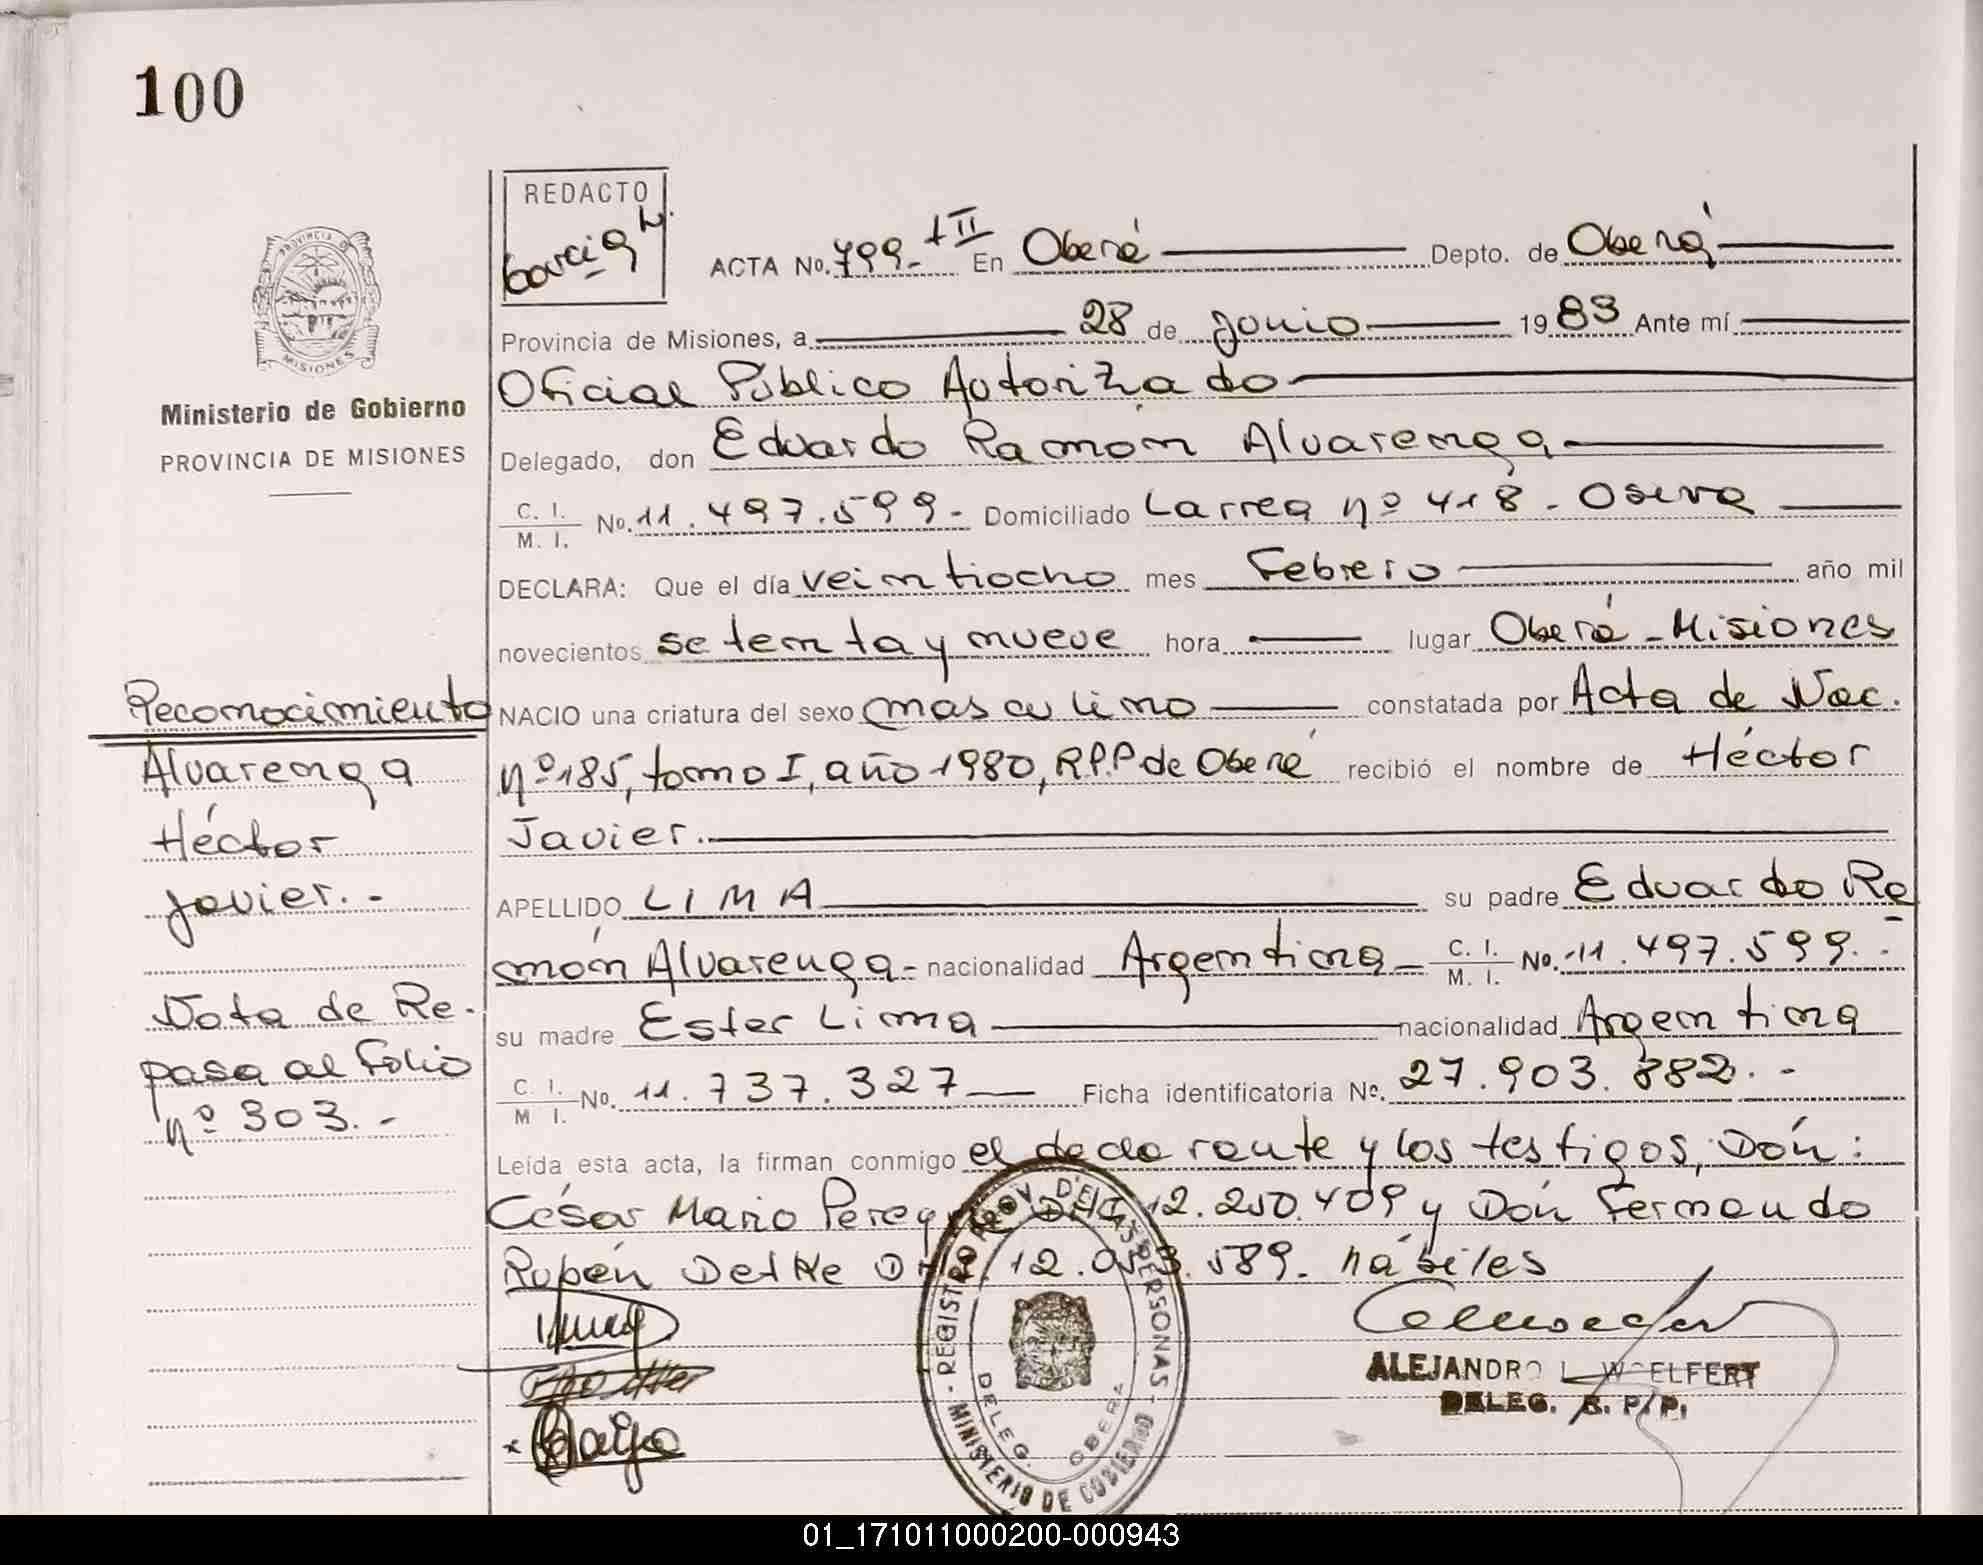 100
REDACTO
García
ACTA No. 799- tII En Oberá Depto. de Oberá
Provincia de Misiones, a 28 de Junio 1983 Ante mí
Oficial Público Autorizado
Delegado, don Eduardo Ramón Alvarenga
C. I. / M. I. No. 11.497.599- Domiciliado Larrea nº 418 - Oberá
DECLARA: Que el día veintiocho mes Febrero año mil
novecientos setenta y nueve hora lugar Oberá - Misiones
NACIO una criatura del sexo masculino constatada por Acta de Nac.
nº 185, tomo I, año 1980, R.P.P de Oberá recibió el nombre de Héctor
Javier.
APELLIDO LIMA su padre Eduardo Ra
món Alvarenga - nacionalidad Argentina - C. I. / M. I. No. 11.497.599.-
su madre Ester Lima nacionalidad Argentina
C. I. / M I. No. 11.737.327 Ficha identificatoria No. 27.903.882.-
Leída esta acta, la firman conmigo el declarante y los testigos, Dón:
César Mario DNI. 12.250.409 y Dón Fernando
Rubén Detke DNI. 12.053.589. hábiles
PROVINCIA D
MISIONES
Ministerio de Gobierno
PROVINCIA DE MISIONES
Reconocimiento
Alvarenga
Héctor
Javier.-
Nota de Re.
pasa al Folio
nº 303.-
REGISTRO PROV. DE LAS PERSONAS
DELEG. OBERA
MINISTERIO DE GOBIERNO
ALEJANDRO L. WOELFERT
DELEG. R. P/P.
01_171011000200-000943